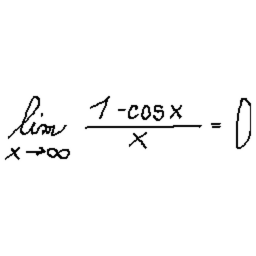 lim x→∞ (1-cosx)/x = 0